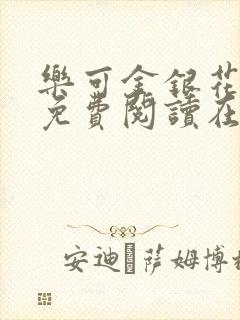 樂可金銀花
免費閱讀在
安迪·薩姆博